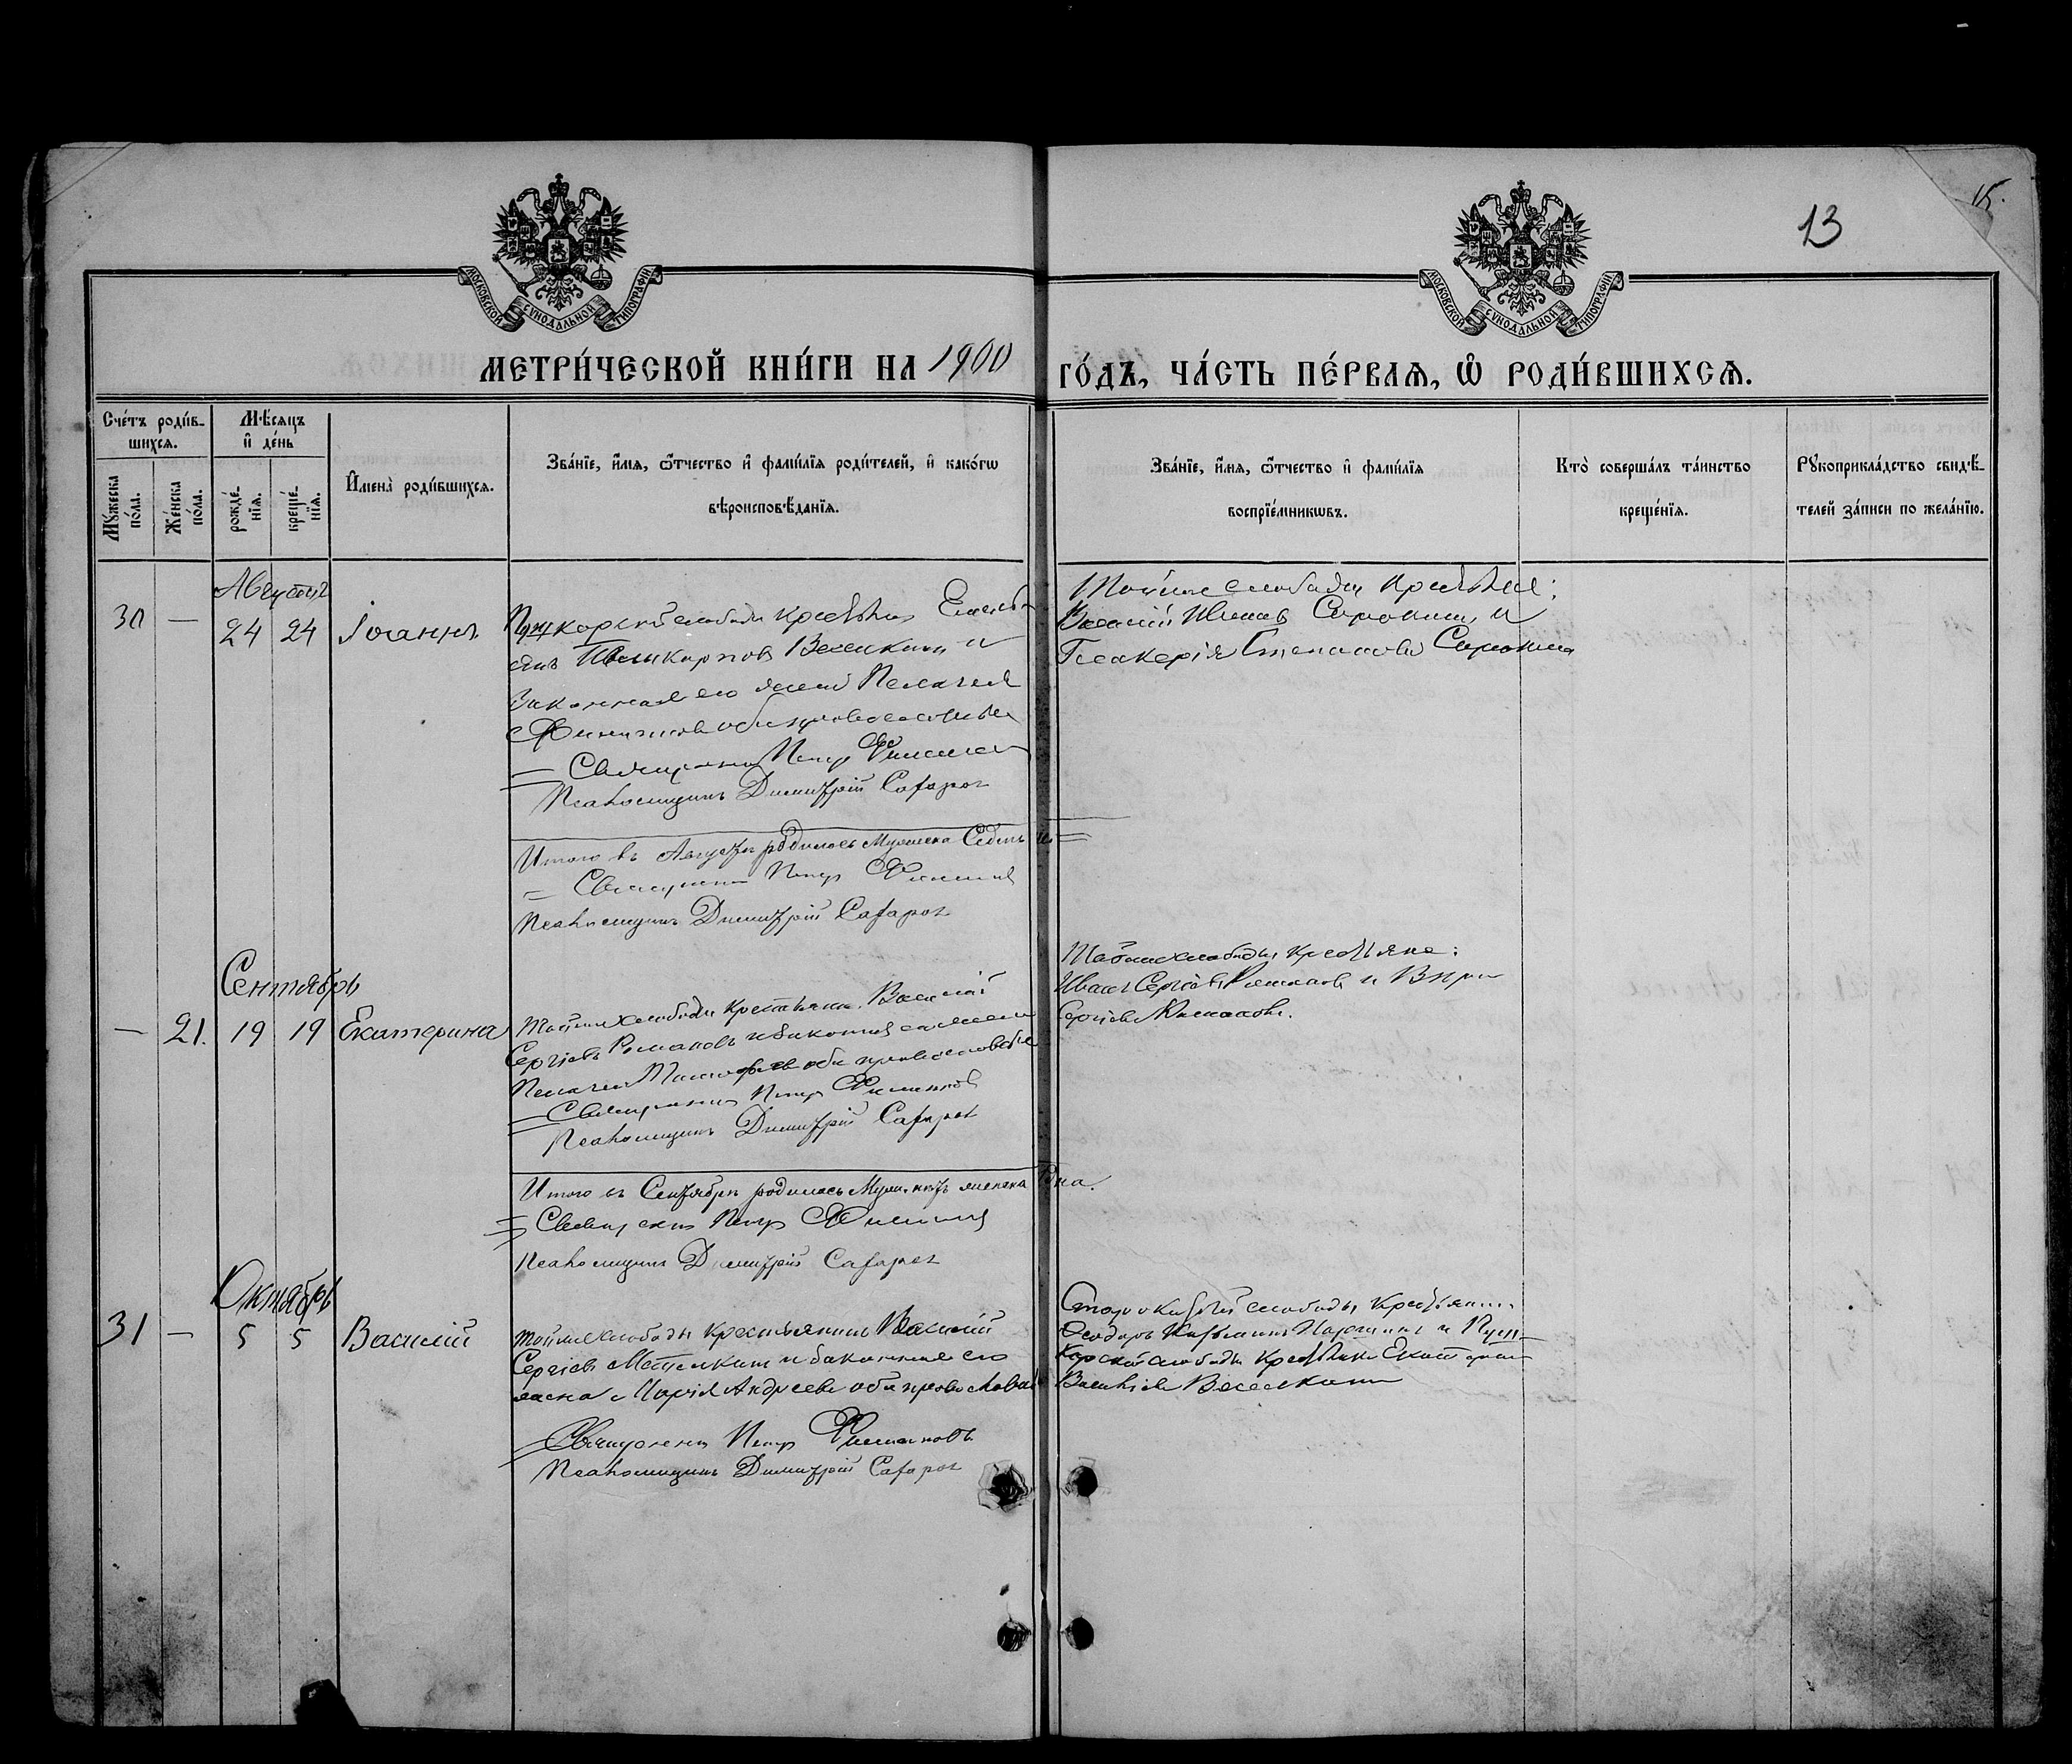 15.
13
МОСКОВСКОЙ СѴНОДАЛЬНОЙ ТИПОГРАФІИ
МОСКОВСКОЙ СѴНОДАЛЬНОЙ ТИПОГРАФІИ
МЕТРИ́ЧЕСКОЙ КНИ́ГИ НА 1900 ГО́ДЪ, ЧА́СТЬ ПЕ́РВАѦ, Ѡ҆ РОДИ́ВШИХСѦ.
Сче́тъ роди́в-
шихсѧ.
Мꙋ́жеска
по́ла.
Же́нска
по́ла.
Мѣ́сѧцъ
и҆ де́нь
рожде́-
нїѧ.
креще́-
нїѧ.
И҆мена̀ роди́вшихсѧ.
Зва́нїе, и҆́мѧ, ѻ҆́тчество и҆ фами́лїѧ роди́телей, и҆ како́гѡ
вѣроисповѣ́данїѧ.
Зва́нїе, и҆́мѧ, ѻ҆́тчество и҆ фами́лїѧ
воспрїе́мникѡвъ.
Кто̀ соверша́лъ та́инство
креще́нїѧ.
Рꙋкоприкла́дство свидѣ́-
телей за́писи по жела́нїю.
Августъ
30 — 24 24 Іоаннъ
Пушкарской слободы
Веселкинъ и
законная его жена Пелагея
оба православные
Священникъ Петръ
Псаломщикъ Димитрій Сафаровъ
Той же слободы крестьяне:
Василій Ивановъ Сорокинъ и
Гликерія Степанова Сорокина
Итого въ Августѣ родилось Мужеска Седмь
Священникъ Петръ
Псаломщикъ Димитрій Сафаровъ
Сентябрь
— 21. 19 19 Екатерина
Той же слободы крестьянинъ Василій
Сергіевъ Романовъ и законная его жена
Пелагея оба православные
Священникъ Петръ
Псаломщикъ Димитрій Сафаровъ
Той же слободы крестьяне:
Иванъ Сергіевъ Романовъ и
Сергіева Романова.
Итого въ Сентябрѣ родилось Муж. нѣтъ женска Одна.
Священникъ Петръ
Псаломщикъ Димитрій Сафаровъ
Октябрь
31 — 5 5 Василій
Той же слободы крестьянинъ Василій
Сергіевъ и законная его
жена Марія Андреева оба православные
Священникъ Петръ
Псаломщикъ Димитрій Сафаровъ
слободы крестьянинъ
и Пуш-
карской слободы Екатерина
Веселкина